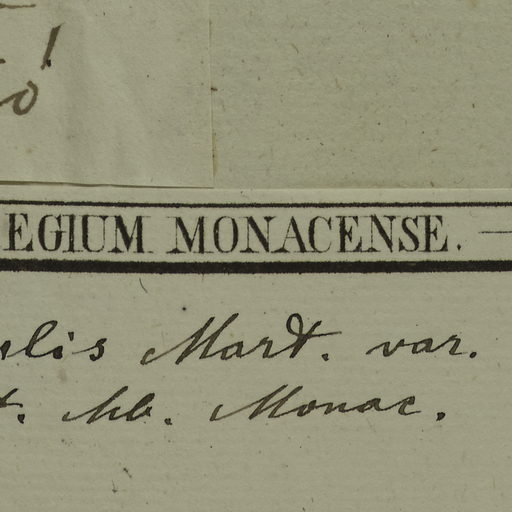 o!
EGIUM MONACENSE. —
lis Mart. var.
t. Hb. Monac.